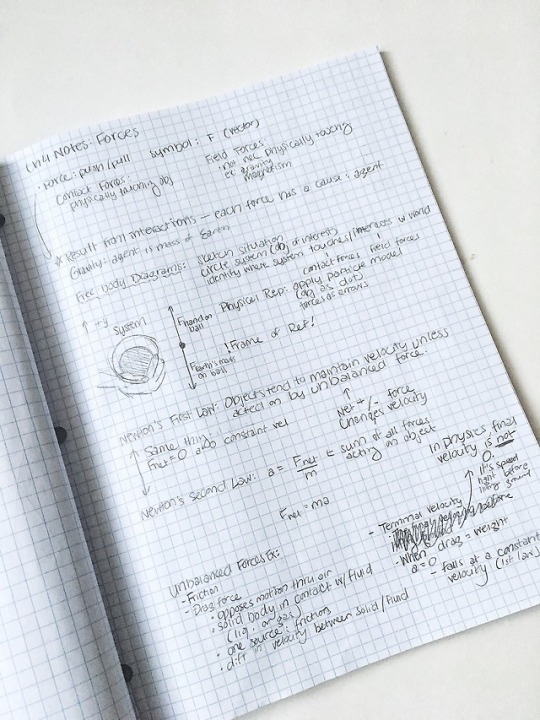 Ch 4 Notes: Forces
· Force: push/pull   symbol: F (vector)
Contact Forces:
physically touching obj
Field Forces
· not nec. physically touching
ex: gravity
magnetism
* Result from interactions — each force has a cause: agent
Gravity: agent is mass of Earth
Free body Diagrams: sketch situation
circle system (obj of interest)
identify where system touches/interacts w world
contact forces field forces
Physical Rep: apply particle model
(obj as dot)
forces as arrows
↑ +y System
F hand on ball
F Earth's mass on ball
! Frame of Ref!
Newton's First Law: Objects tend to maintain velocity unless
acted on by unbalanced force.
Same thing:
Fnet = 0 a=0 constant vel
↑
Net +/- force
changes velocity
Newton's Second Law: a = Fnet/m ← sum of all forces
acting on object
Fnet = ma
In physics, final
velocity is not
0.
↑ it's speed
right before
hitting ground
Unbalanced Forces Ex:
- Friction
- Drag force
· opposes motion thru air
· solid body in contact w/ fluid
(liq. or gas)
· one source: friction
· diff in velocity between solid/fluid
- Terminal velocity
- when drag = weight
a = 0
- falls at a constant
velocity (1st law)